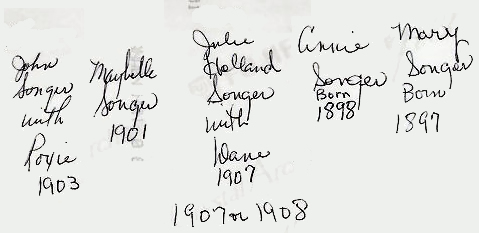 John
Songer
with
Roxie
1903
Maybelle
Songer
1901
Julie
Holland
Songer
with
Dane
1907
Annie
Songer
Born
1898
Mary
Songer
Born
1897
1907 or 1908